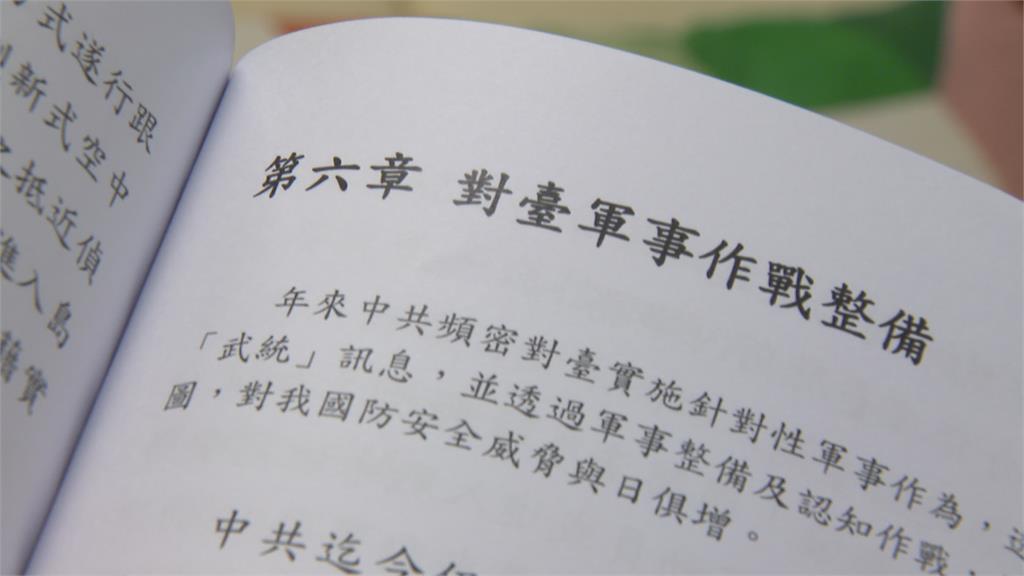 式遂行跟
新式空中
抵近偵
進入島
實
第六章 對臺軍事作戰整備
年來中共頻密對臺實施針對性軍事作為，
「武統」訊息，並透過軍事整備及認知作戰
圖，對我國防安全威脅與日俱增。
中共迄今